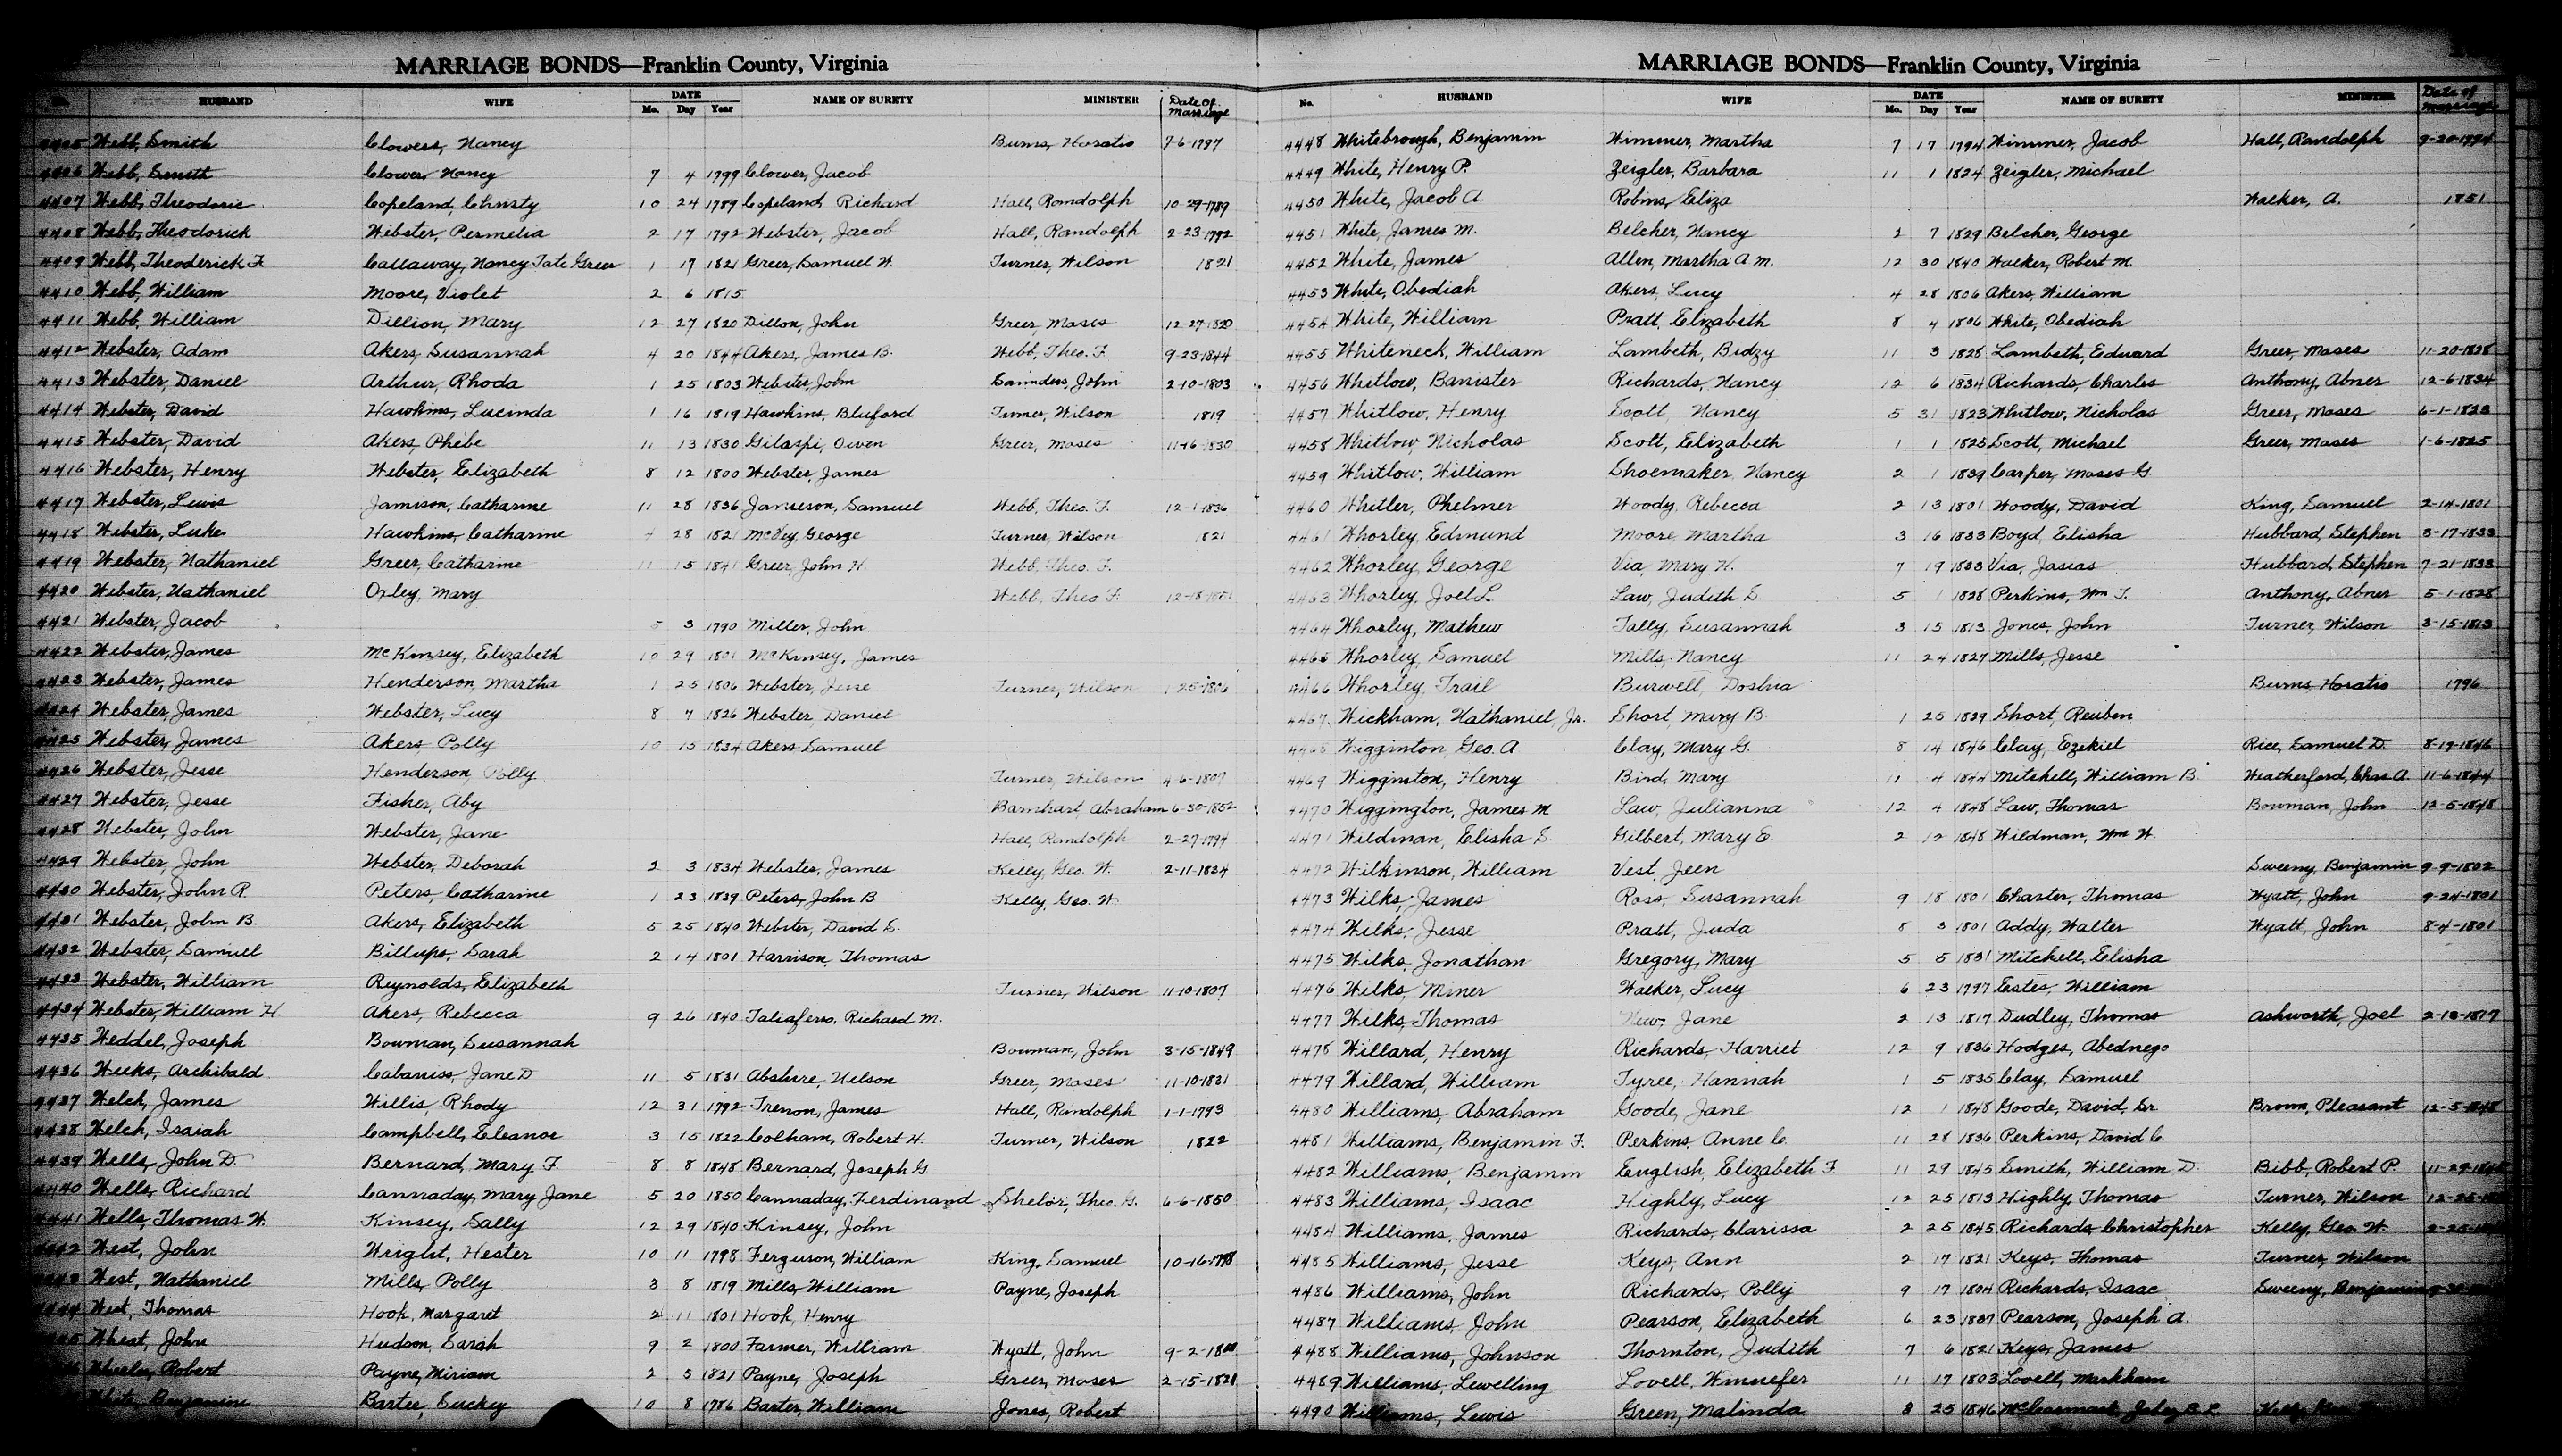 MARRIAGE BONDS—Franklin County, Virginia
HUSBAND WIFE DATE Mo. Day Year NAME OF SURETY MINISTER Date of Marriage
4405 Webb, Smith Clowers, Nancy Burns, Horatio 7-6-1797
4406 Webb, Smith Clower, Nancy 7 4 1799 Clower, Jacob
4407 Webb, Theodoric Copeland, Christy 10 24 1789 Copeland, Richard Hall, Randolph 10-29-1789
4408 Webb, Theodorick Webster, Permelia 2 17 1792 Webster, Jacob Hall, Randolph 2-23-1792
4409 Webb, Theoderick F. Callaway, Nancy Tate Greer 1 17 1821 Greer, Samuel W. Turner, Wilson 1821
4410 Webb, William Moore, Violet 2 6 1815
4411 Webb, William Dillion, Mary 12 27 1820 Dillon, John Greer, Moses 12-27-1820
4412 Webster, Adam Akers, Susannah 4 20 1844 Akers, James B. Webb, Theo. F. 9-23-1844
4413 Webster, Daniel Arthur, Rhoda 1 25 1803 Webster, John Saunders, John 2-10-1803
4414 Webster, David Hawkins, Lucinda 1 16 1819 Hawkins, Bluford Turner, Wilson 1819
4415 Webster, David Akers, Phebe 11 13 1830 Gilaspi, Owen Greer, Moses 11-16-1830
4416 Webster, Henry Webster, Elizabeth 8 12 1800 Webster, James
4417 Webster, Lewis Jamison, Catharine 11 28 1836 Jamieson, Samuel Webb, Theo. F. 12-1-1836
4418 Webster, Luke Hawkins, Catharine 4 28 1821 McVey, George Turner, Wilson 1821
4419 Webster, Nathaniel Greer, Catharine 11 15 1841 Greer, John H. Webb, Theo. F.
4420 Webster, Nathaniel Oxley, Mary Webb, Theo F.
4421 Webster, Jacob 5 3 1790 Miller, John
4422 Webster, James McKinsey, Elizabeth 10 29 1801 McKinsey, James
4423 Webster, James Henderson, Martha 1 25 1806 Webster, Jesse Turner, Wilson 1-25-1806
4424 Webster, James Webster, Lucy 8 7 1826 Webster, Daniel
4425 Webster, James Akers, Polly 10 15 1834 Akers, Samuel
4426 Webster, Jesse Henderson, Polly Turner, Wilson 4-6-1807
4427 Webster, Jesse Fisher, Aby Barnhart, Abraham 6-30-1852
4428 Webster, John Webster, Jane Hall, Randolph 2-27-1794
4429 Webster, John Webster, Deborah 2 3 1834 Webster, James Kelly, Geo. W. 2-11-1834
4430 Webster, John R. Peters, Catharine 1 23 1839 Peters, John B. Kelly, Geo. W.
4431 Webster, John B. Akers, Elizabeth 5 25 1840 Webster, David S.
4432 Webster, Samuel Billups, Sarah 2 14 1801 Harrison, Thomas
4433 Webster, William Reynolds, Elizabeth Turner, Wilson 11-10-1807
4434 Webster, William H. Akers, Rebecca 9 26 1840 Taliaferro, Richard M.
4435 Weddel, Joseph Bowman, Susannah Bowman, John 3-15-1849
4436 Weeks, Archibald Cabaniss, Jane D 11 5 1831 Abshire, Nelson Greer, Moses 11-10-1831
4437 Welch, James Willis, Rhody 12 31 1792 Trenon, James Hall, Randolph 1-1-1793
4438 Welch, Isaiah Campbell, Eleanor 3 15 1822 Colham, Robert H. Turner, Wilson 1822
4439 Wells, John D. Bernard, Mary F. 8 8 1848 Bernard, Joseph G
4440 Wells, Richard Cannaday, Mary Jane 5 20 1850 Cannaday, Ferdinand Shelor, Theo. G. 6-6-1850
4441 Wells, Thomas W. Kinsey, Sally 12 29 1840 Kinsey, John
4442 West, John Wright, Hester 10 11 1798 Ferguson, William King, Samuel 10-16-1798
4443 West, Nathaniel Mills, Polly 3 8 1819 Mills, William Payne, Joseph
West, Thomas Hook, Margaret 2 11 1801 Hook, Henry
Wheat, John Hudson, Sarah 9 2 1800 Farmer, William Wyatt, John 9-2-1800
Wheeler, Robert Payne, Miriam 2 5 1821 Payne, Joseph Greer, Moses 2-15-1821
White, Benjamin Bartee, Suckey 10 8 1786 Barter, William Jones, Robert
MARRIAGE BONDS—Franklin County, Virginia
No. HUSBAND WIFE DATE Mo. Day Year NAME OF SURETY MINISTER Date of Marriage
4448 Whitebrough, Benjamin Wimmer, Martha 7 17 1794 Wimmer, Jacob Hall, Randolph 9-20-1794
4449 White, Henry P. Zeigler, Barbara 11 1 1824 Zeigler, Michael
4450 White, Jacob A. Robins, Eliza Walker, A. 1851
4451 White, James M. Belcher, Nancy 2 7 1829 Belcher, George
4452 White, James Allen, Martha A M. 12 30 1840 Walker, Robert M.
4453 White, Obediah Akers, Lucy 4 28 1806 Akers, William
4454 White, William Pratt, Elizabeth 8 4 1806 White, Obediah
4455 Whiteneck, William Lambeth, Bidzy 11 3 1828 Lambeth, Edward Greer, Moses 11-20-1828
4456 Whitlow, Banister Richards, Nancy 12 6 1834 Richards, Charles Anthony, Abner 12-6-1834
4457 Whitlow, Henry Scott, Nancy 5 31 1823 Whitlow, Nicholas Greer, Moses 6-1-1823
4458 Whitlow, Nicholas Scott, Elizabeth 1 1 1825 Scott, Michael Greer, Moses 1-6-1825
4459 Whitlow, William Shoemaker, Nancy 2 1 1839 Carper, Moses G.
4460 Whitler, Phelmer Woody, Rebecca 2 13 1801 Woody, David King, Samuel 2-14-1801
4461 Whorley, Edmund Moore, Martha 3 16 1833 Boyd, Elisha Hubbard, Stephen 3-17-1833
4462 Whorley, George Via, Mary H. 7 19 1833 Via, Jasias Hubbard, Stephen 7-21-1833
4463 Whorley, Joel L. Law, Judith S. 5 1 1828 Perkins, Wm T. Anthony, Abner 5-1-1828
4464 Whorley, Mathew Tally, Susannah 3 15 1813 Jones, John Turner, Wilson 3-15-1813
4465 Whorley, Samuel Mills, Nancy 11 24 1827 Mills, Jesse
4466 Whorley, Trail Burwell, Doshua Burns, Horatio 1796
4467 Wickham, Nathaniel Jr. Short, Mary B. 1 25 1829 Short, Reuben
4468 Wigginton, Geo. A Clay, Mary G. 8 14 1846 Clay, Ezekiel Rice, Samuel D. 8-19-1846
4469 Wigginton, Henry Bird, Mary 11 4 1844 Mitchell, William B. Weatherford, Chas A. 11-6-1844
4470 Wiggington, James M Law, Julianna 12 4 1848 Law, Thomas Bowman, John 12-5-1848
4471 Wildman, Elisha S. Gilbert, Mary E. 2 12 1848 Wildman, Wm W.
4472 Wilkinson, William Vest, Jeen Sweeny, Benjamin 9-9-1802
4473 Wilks, James Ross, Susannah 9 18 1801 Charter, Thomas Wyatt, John 9-24-1801
4474 Wilks, Jesse Pratt, Juda 8 3 1801 Addy, Walter Wyatt, John 8-4-1801
4475 Wilks, Jonathan Gregory, Mary 5 5 1831 Mitchell, Elisha
4476 Wilks, Miner Walker, Lucy 6 23 1797 Estes, William
4477 Wilks, Thomas New, Jane 2 13 1817 Dudley, Thomas Ashworth, Joel 2-13-1817
4478 Willard, Henry Richards, Harriet 12 9 1836 Hodges, Abednego
4479 Willard, William Tyree, Hannah 1 5 1835 Clay, Samuel
4480 Williams, Abraham Goode, Jane 12 1 1848 Goode, David, Sr Brown, Pleasant 12-5-1848
4481 Williams, Benjamin F. Perkins, Anne C. 11 28 1836 Perkins, David C.
4482 Williams, Benjamin English, Elizabeth F. 11 29 1845 Smith, William D. Bibb, Robert P.
4483 Williams, Isaac Highly, Lucy 12 25 1813 Highly, Thomas Turner, Wilson
4484 Williams, James Richards, Clarissa 2 25 1845 Richards, Christopher Kelly, Geo. W.
4485 Williams, Jesse Keys, Ann 2 17 1821 Keys, Thomas Turner, Wilson
4486 Williams, John Richards, Polly 9 17 1804 Richards, Isaac Sweeny, Benjamin
4487 Williams, John Pearson, Elizabeth 6 23 1837 Pearson, Joseph A.
4488 Williams, Johnson Thornton, Judith 7 6 1821 Keys, James
4489 Williams, Lewelling Lovell, Winnefer 11 17 1803 Lovell, Markham
4490 Williams, Lewis Green, Malinda 8 25 1846